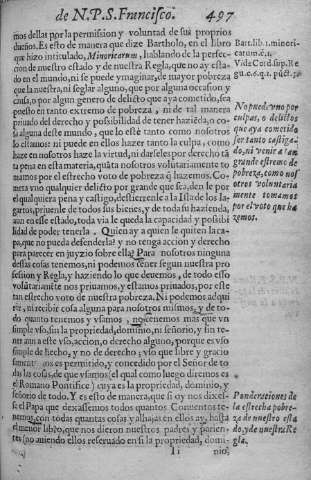 de N.P.S. Francisco. 497
mos dellas por la permission y voluntad de sus proprios
dueños. Es esto de manera que dize Bartholo, en el libro
que hizo intitulado, Minoricarum, hablando de la perfec-
cion de nuestro estado y de nuestra Regla, que no ay esta-
do en el mundo, ni se puede ymaginar, de mayor pobreza
que la nuestra, ni seglar alguno, que por alguna occasion y
causa, o por algun genero de delicto que aya cometido, sea
puesto en tanto extremo de pobreza, ni de tal manera
priuado del derecho y possibilidad de tener hazieda, o co-
sa alguna deste mundo, que lo estè tanto como nosotros
lo estamos: ni puede en ellos hazer tanto la culpa, como
haze en nosotros haze la virtud, ni darseles por derecho ta
ta pena en esta materia, quáta nosotros voluntariamente to
mamos por el estrecho voto de pobreza q hazemos. Co
meta vno qualquier delicto por grande que sea, den le por
el qualquiera pena y castigo, destierrenle a la Isla de los la-
gartos, priuenle de todos sus bienes, y de toda su hazienda,
aun en esse estado, toda via le queda la capacidad y possibi
lidad de poder tenerla. Quien ay a quien le quiten la ca-
pa, que no pueda defenderla? y no tenga accion y derecho
para parecer en juyzio sobre ella? Para nosotros ninguna
destas cosas tenemos, ni podemos tener segun nuestra pro
fession y Regla, y haziendo lo que deuemos, de todo esso
volutariaméte nos priuamos, y estamos priuados, por este
tan estrecho voto de nuestra pobreza. Ni podemos adqui
rir, ni recibir cosa alguna para nosotros mismos, y de to-
do quanto tenemos y vsamos, no tenemos mas que vn
simple vso, sin la propriedad, dominio, ni señorio, y sin te-
ner aun a este vso, accion, o derecho alguno, porque es vso
simple de hecho, y no de derecho; vso que libre y gracio
samente nos es permitido, y concedido por el Señor de to
das las cosas, de que vsamos (el qual como luego diremos es
el Romano Pontifice) cuya es la propriedad, dominio, y
señorio de todo. Y es esto de manera, que si oy nos dixes-
se el Papa que dexassemos todos quantos Conuentos te-
nemos, con todas quantas cosas y alhajas en ellos ay, hasta
el menor libro, que nos dieron nuestros padres y parien-
tes (no auiendo ellos reseruado en si la propriedad, domi-
Ii nio,
Bart. lib. 1. minori-
catum. c. 1.
Vide Cord. sup. Re
gu. c. 6. q. 1. púct. 5.
No puede vno por
culpas, o delictos
que aya cometido
ser tanto castiga-
do, ni venir a tan
grande estremo de
pobreza, como nos
otros voluntaria
mente tomamos
por el voto que ha
zemos.
Ponderaciones de
la estrecha pobre-
za de nuestro esta
do, y de nuestra Re
gla.